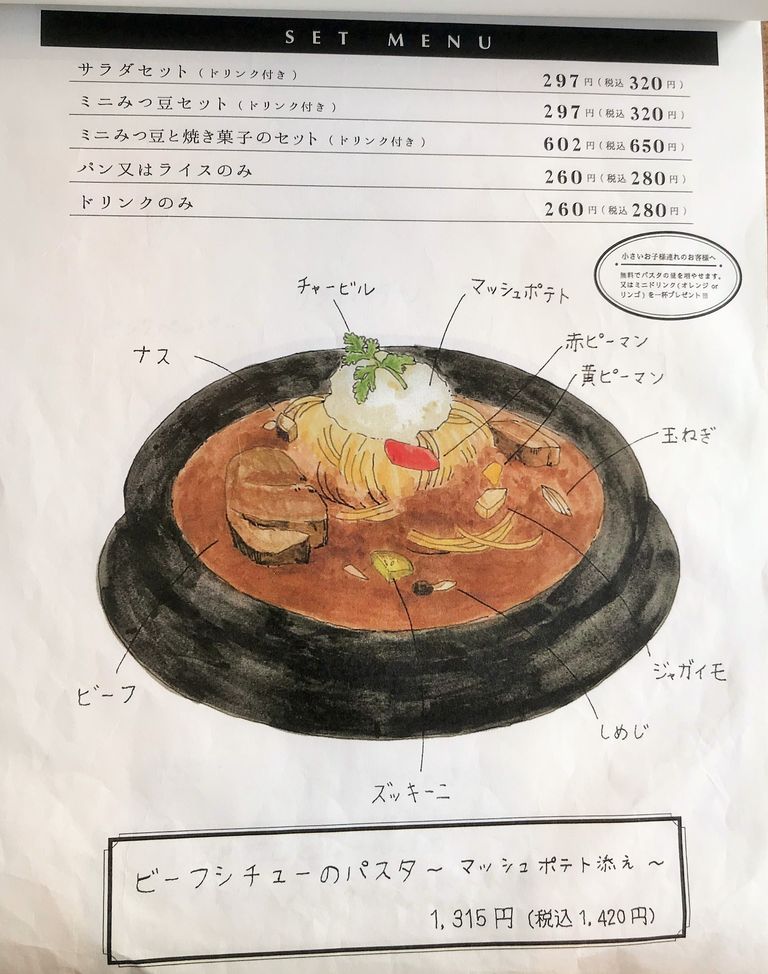 SET MENU
サラダセット（ドリンク付き） 297円（税込320円）
ミニみつ豆セット（ドリンク付き） 297円（税込320円）
ミニみつ豆と焼き菓子のセット（ドリンク付き） 602円（税込650円）
パン又はライスのみ 260円（税込280円）
ドリンクのみ 260円（税込280円）
小さいお子様連れのお客様へ
無料でパスタの量を増やせます。
又はミニドリンク(オレンジor
リンゴ)を一杯プレゼント
チャービル
マッシュポテト
赤ピーマン
ナス
黄ピーマン
玉ねぎ
ジャガイモ
ビーフ
しめじ
ズッキーニ
ビーフシチューのパスタ〜 マッシュポテト添え 〜
1,315円（税込1,420円）